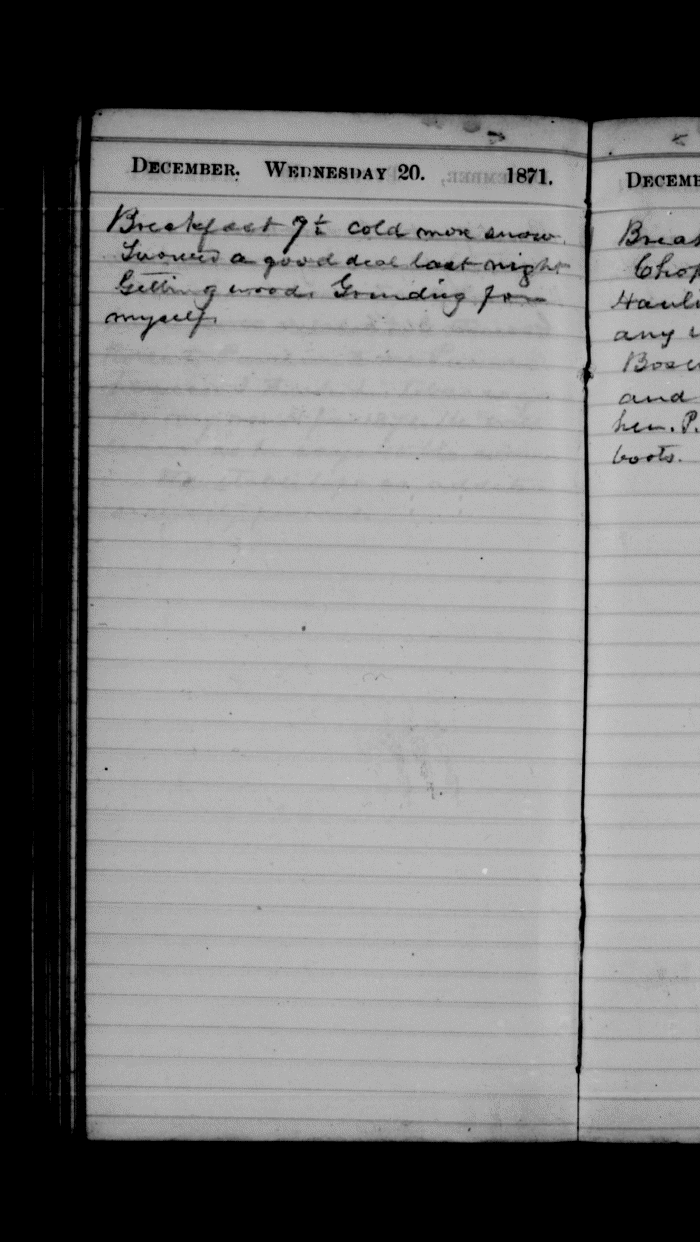 DECEMBER. WEDNESDAY 20. 1871.
Breakfast 7½ cold more snow.
Snowed a good deal last night
Getting wood. Grinding for
myself.
DECEM
Breas
Chop
Hauli
any
Bose
and
hen. P.
boots.